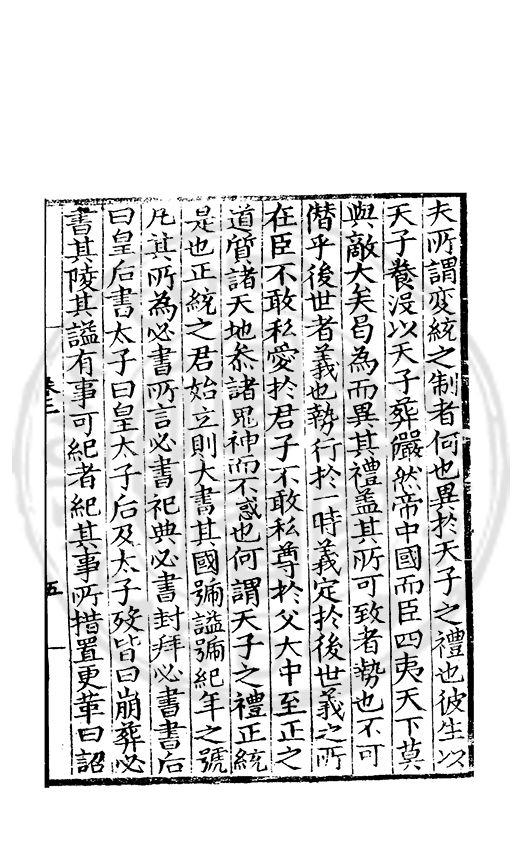 夫所謂変統之制者何也異於天子之禮也彼生以
天子養沒以天子葬嚴然帝中國而臣四夷天下莫
與敵大矣曷為而異其禮盖其所可致者勢也不可
僣乎後世者義也勢行於一時義定於後世義之所
在臣不敢私愛於君子不敢私尊於父大中至正之
道質諸天地叅諸鬼神而不惑也何謂天子之禮正統
是也正統之君始立則大書其國號謚號紀年之號
凡其所為必書所言必書祀典必書封拜必書書后
曰皇后書太子曰皇太子后及太子殁皆曰崩葬必
書其陵其謚有事可紀者紀其事所措置更革曰詔
卷二
五